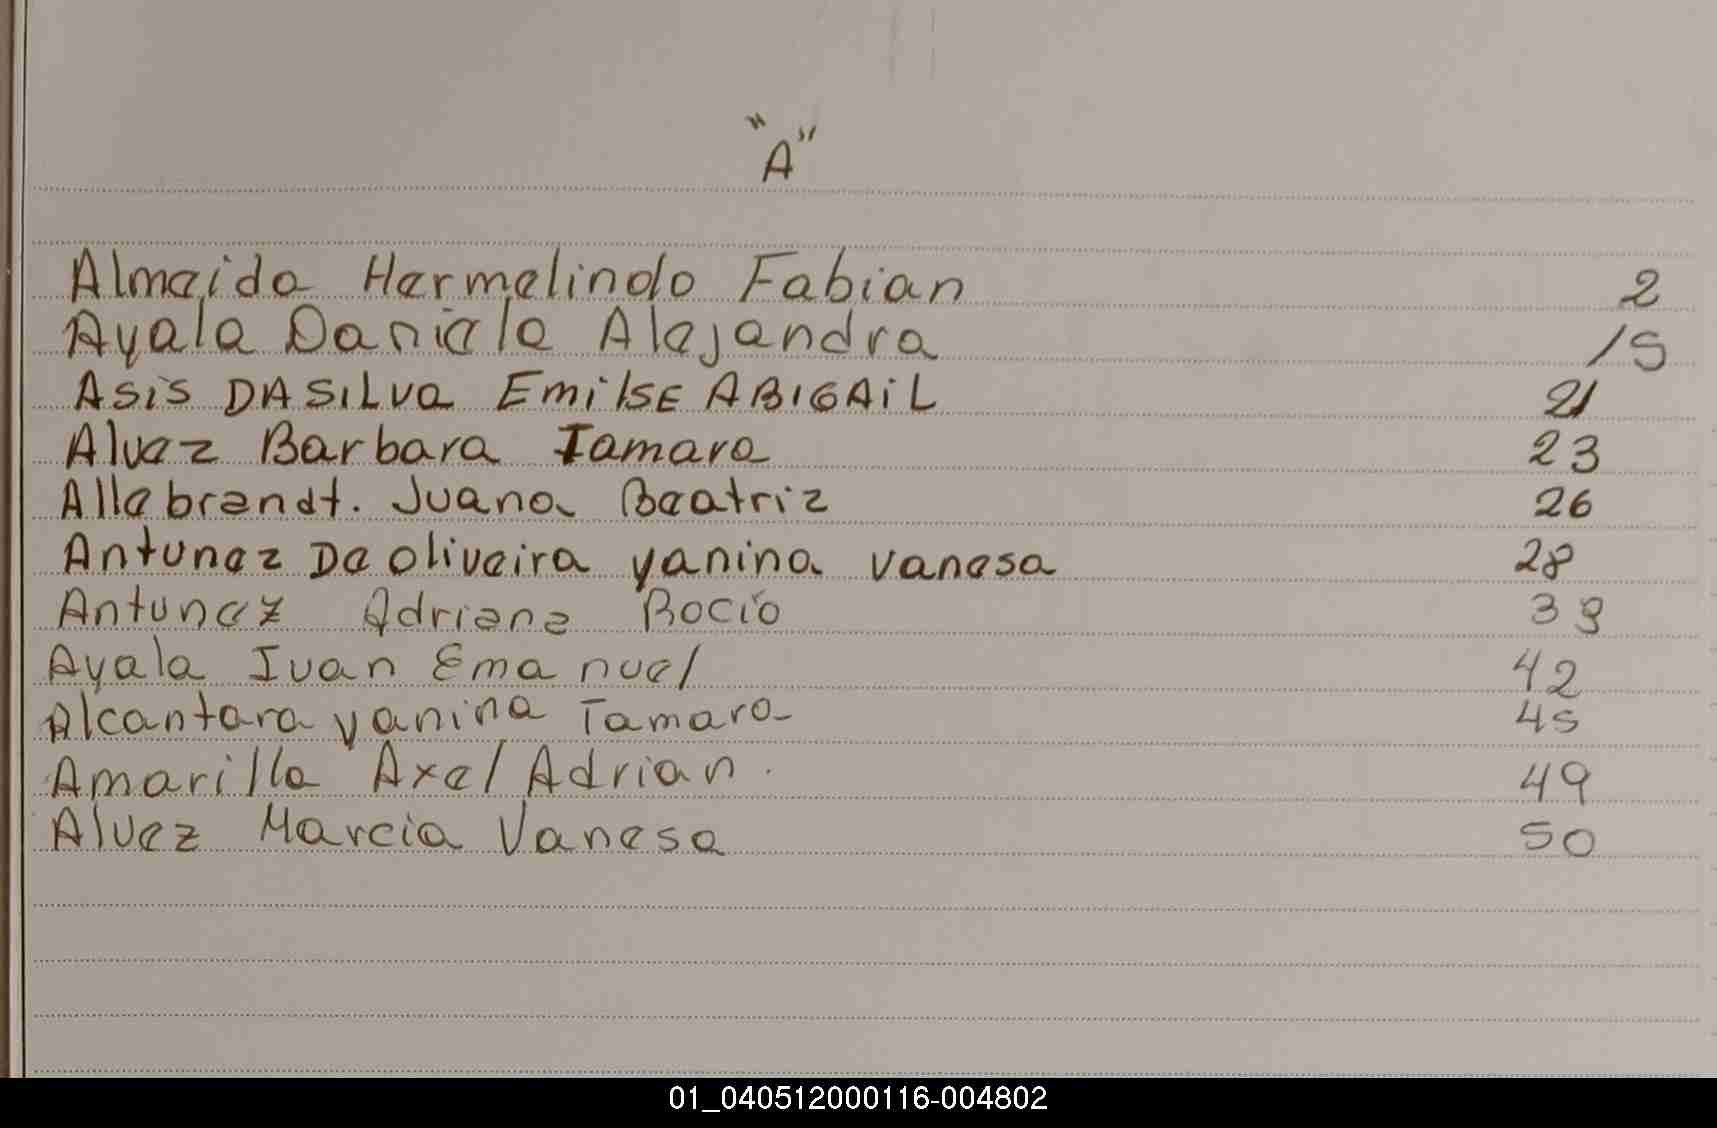 "A"
Almeida Hermelindo Fabian 2
Ayala Daniela Alejandra 15
Asis DASiLva EmilsE ABIGAiL 21
Alvez Barbara Tamara 23
Allebrandt. Juana Beatriz 26
Antunez De oliveira yanina vanesa 28
Antunez Adriana Rocío 39
Ayala Ivan Emanuel 42
Alcantara yanina Tamara 45
Amarilla Axel Adrian. 49
Alvez Marcia Vanesa 50
01_040512000116-004802